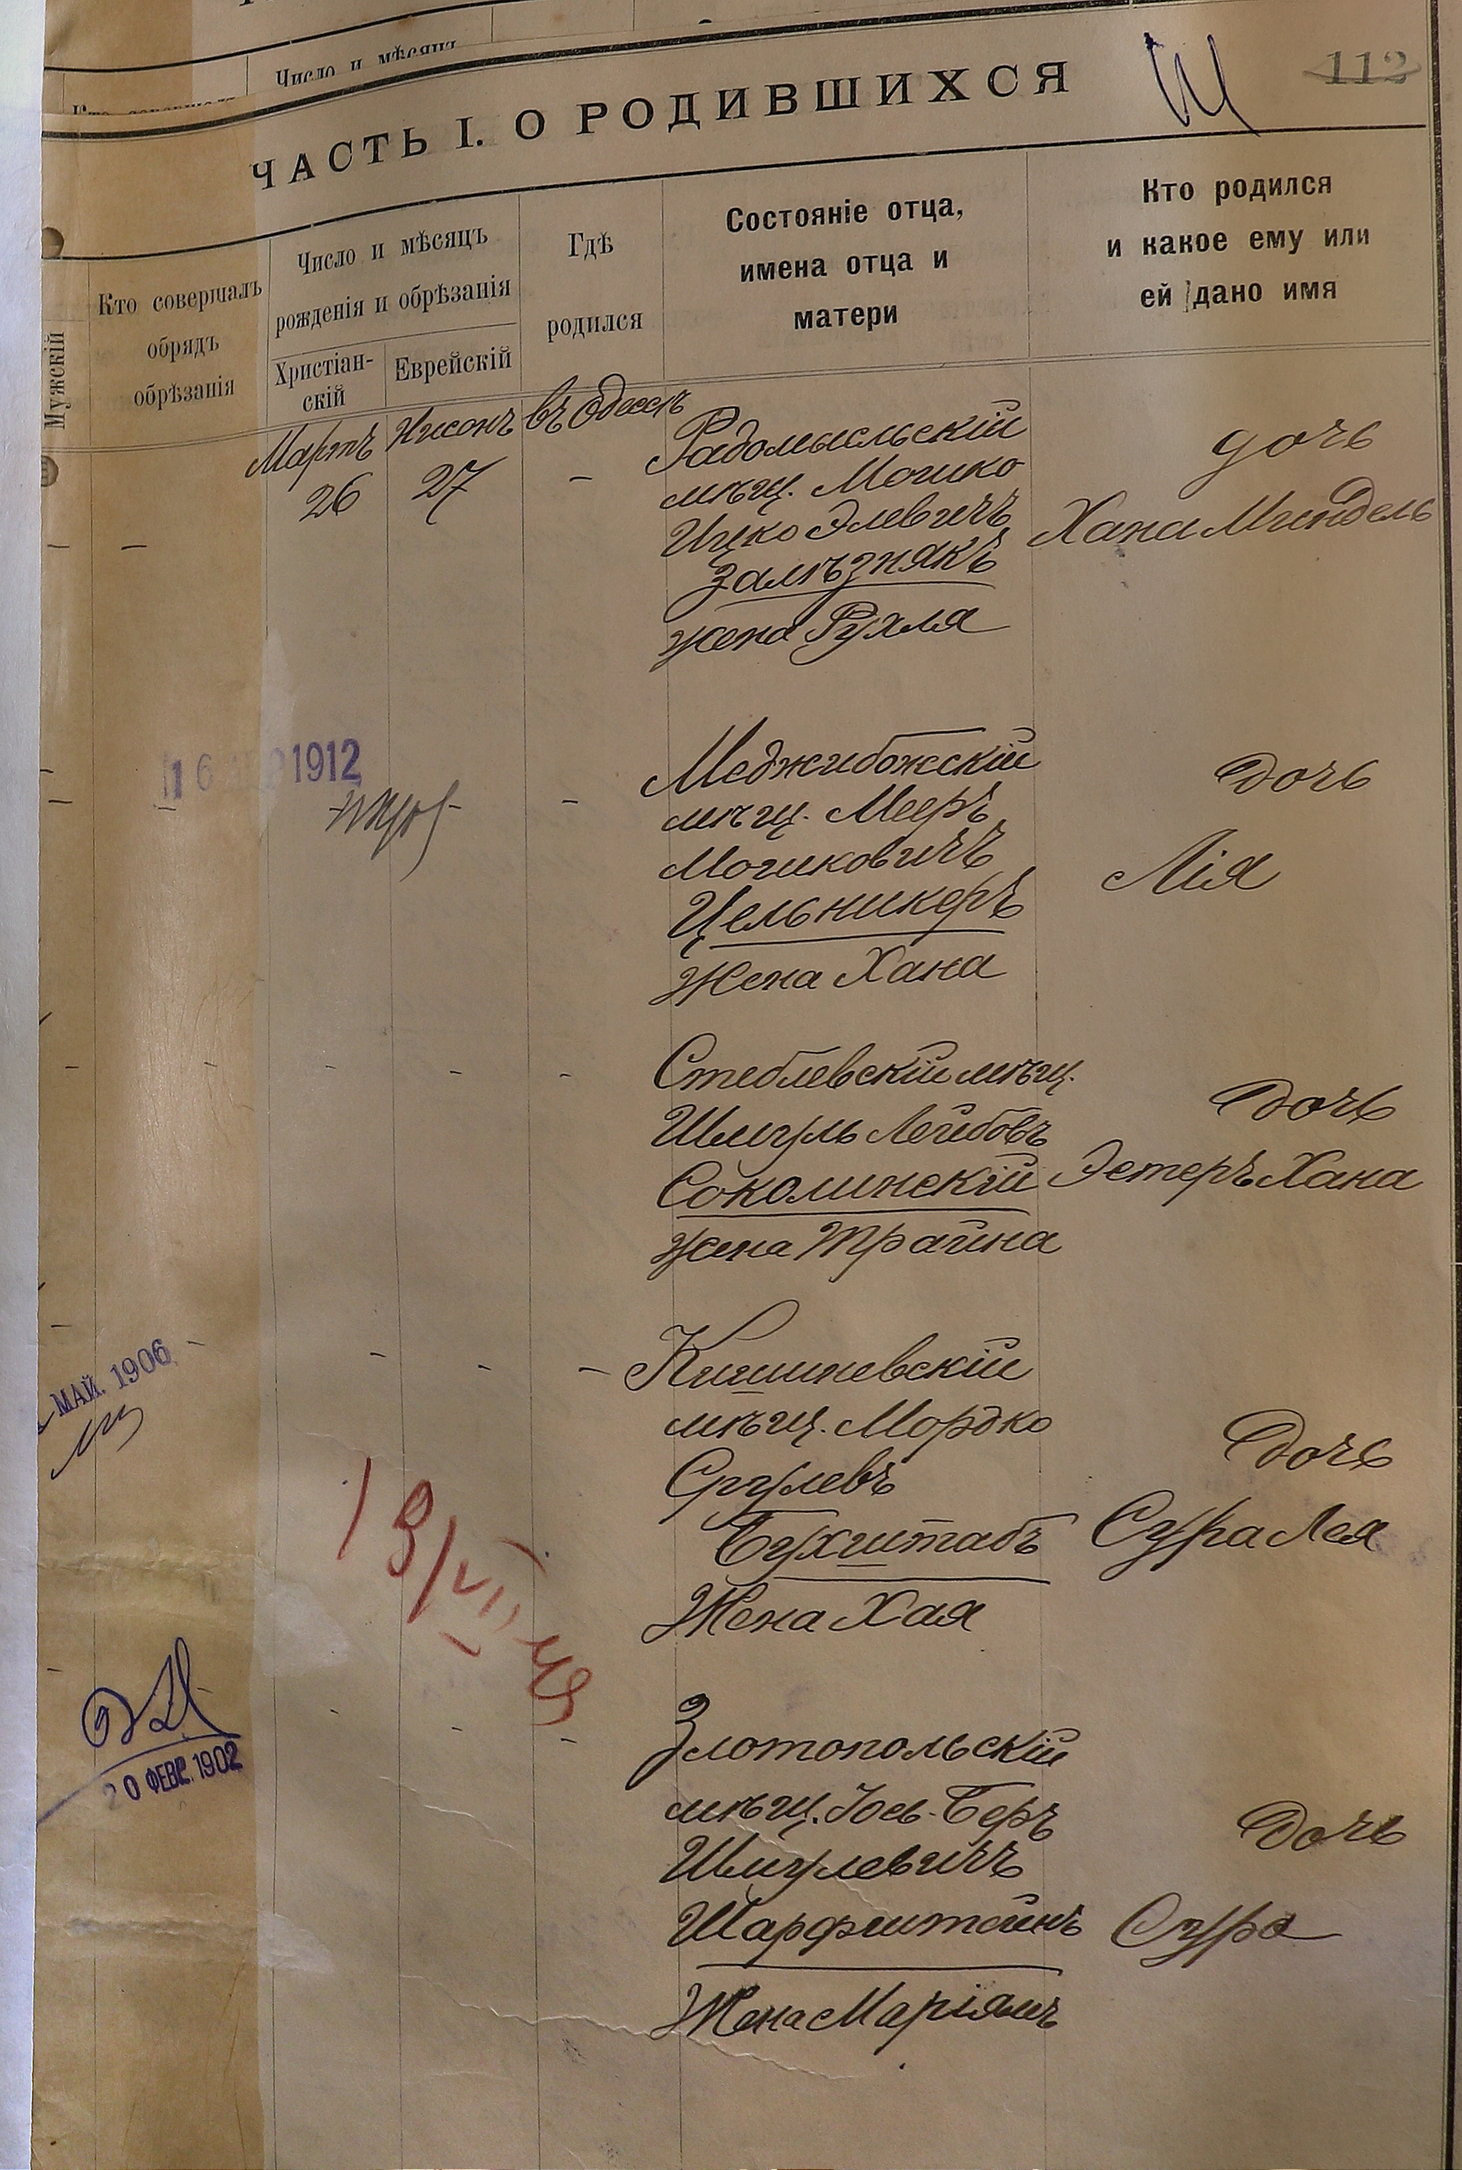 Число и мѣсяцъ
ЧАСТЬ I. О РОДИВШИХСЯ
112
Мужскій
Кто совершалъ
обрядъ
обрѣзанія
Число и мѣсяцъ
рожденія и обрѣзанія
Христіан-
скій
Еврейскій
Гдѣ
родился
Состояніе отца,
имена отца и
матери
Кто родился
и какое ему или
ей дано имя
Мартъ
26
Нисонъ
27
въ Одессѣ
–
Радомысльскій
мѣщ. Мошко
Ицко Элевичъ
Залѣзнякъ
жена Рухля
дочь
Хана Миндель
16 1912
Меджибожскій
мѣщ. Мееръ
Мошковичъ
Цельникеръ
Жена Хана
дочь
Лія
Стеблевскій мѣщ.
Шмуль Лейбовъ
Соколинскій
жена Трайна
дочь
Эстеръ Хана
МАЙ. 1906
Кишиневскій
мѣщ. Мордко
Срулевъ
Бухштабъ
Жена Хая
дочь
Сура Лея
13/VII 49
20 ФЕВР. 1902
Злотопольскій
мѣщ. Іось-Беръ
Шмулевичъ
Шарфштейнъ
Жена Маріямъ
дочь
Сура